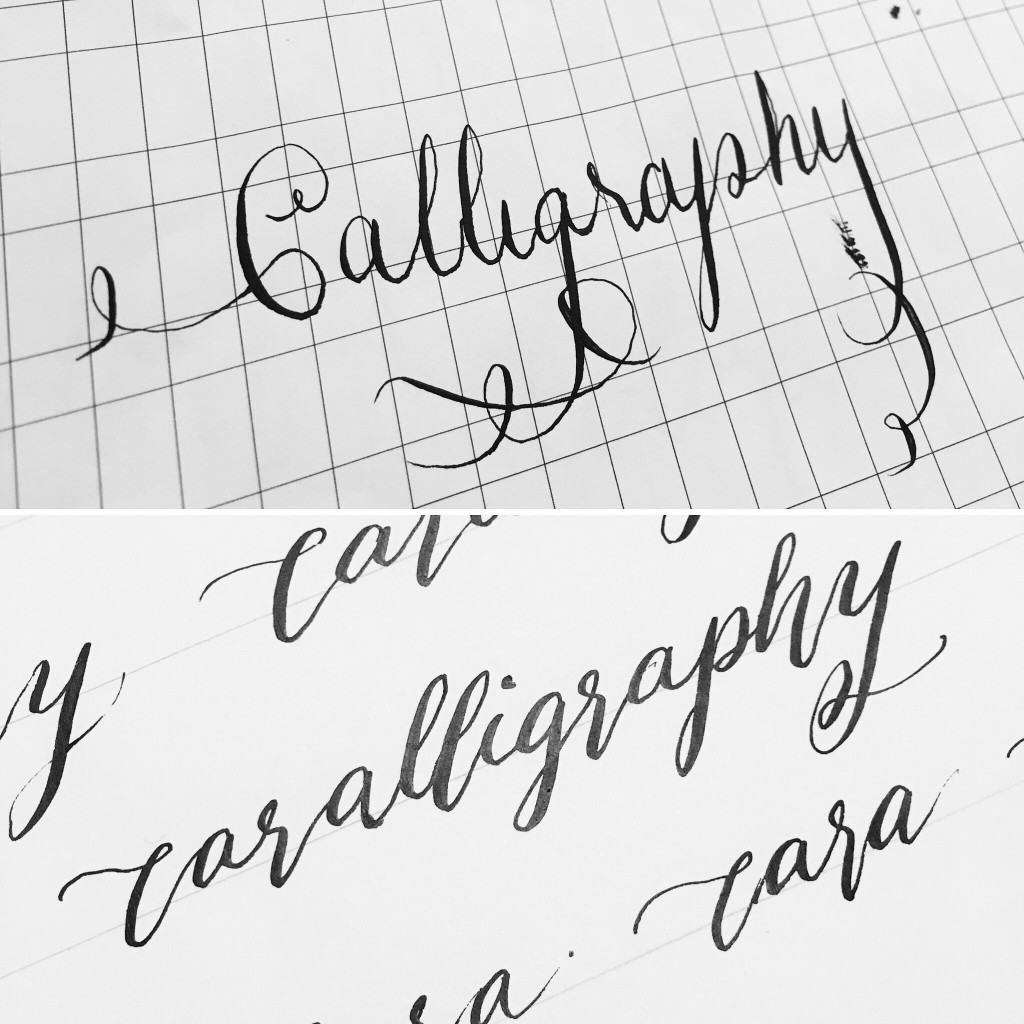 Calligraphy
y
caralligraphy
cara